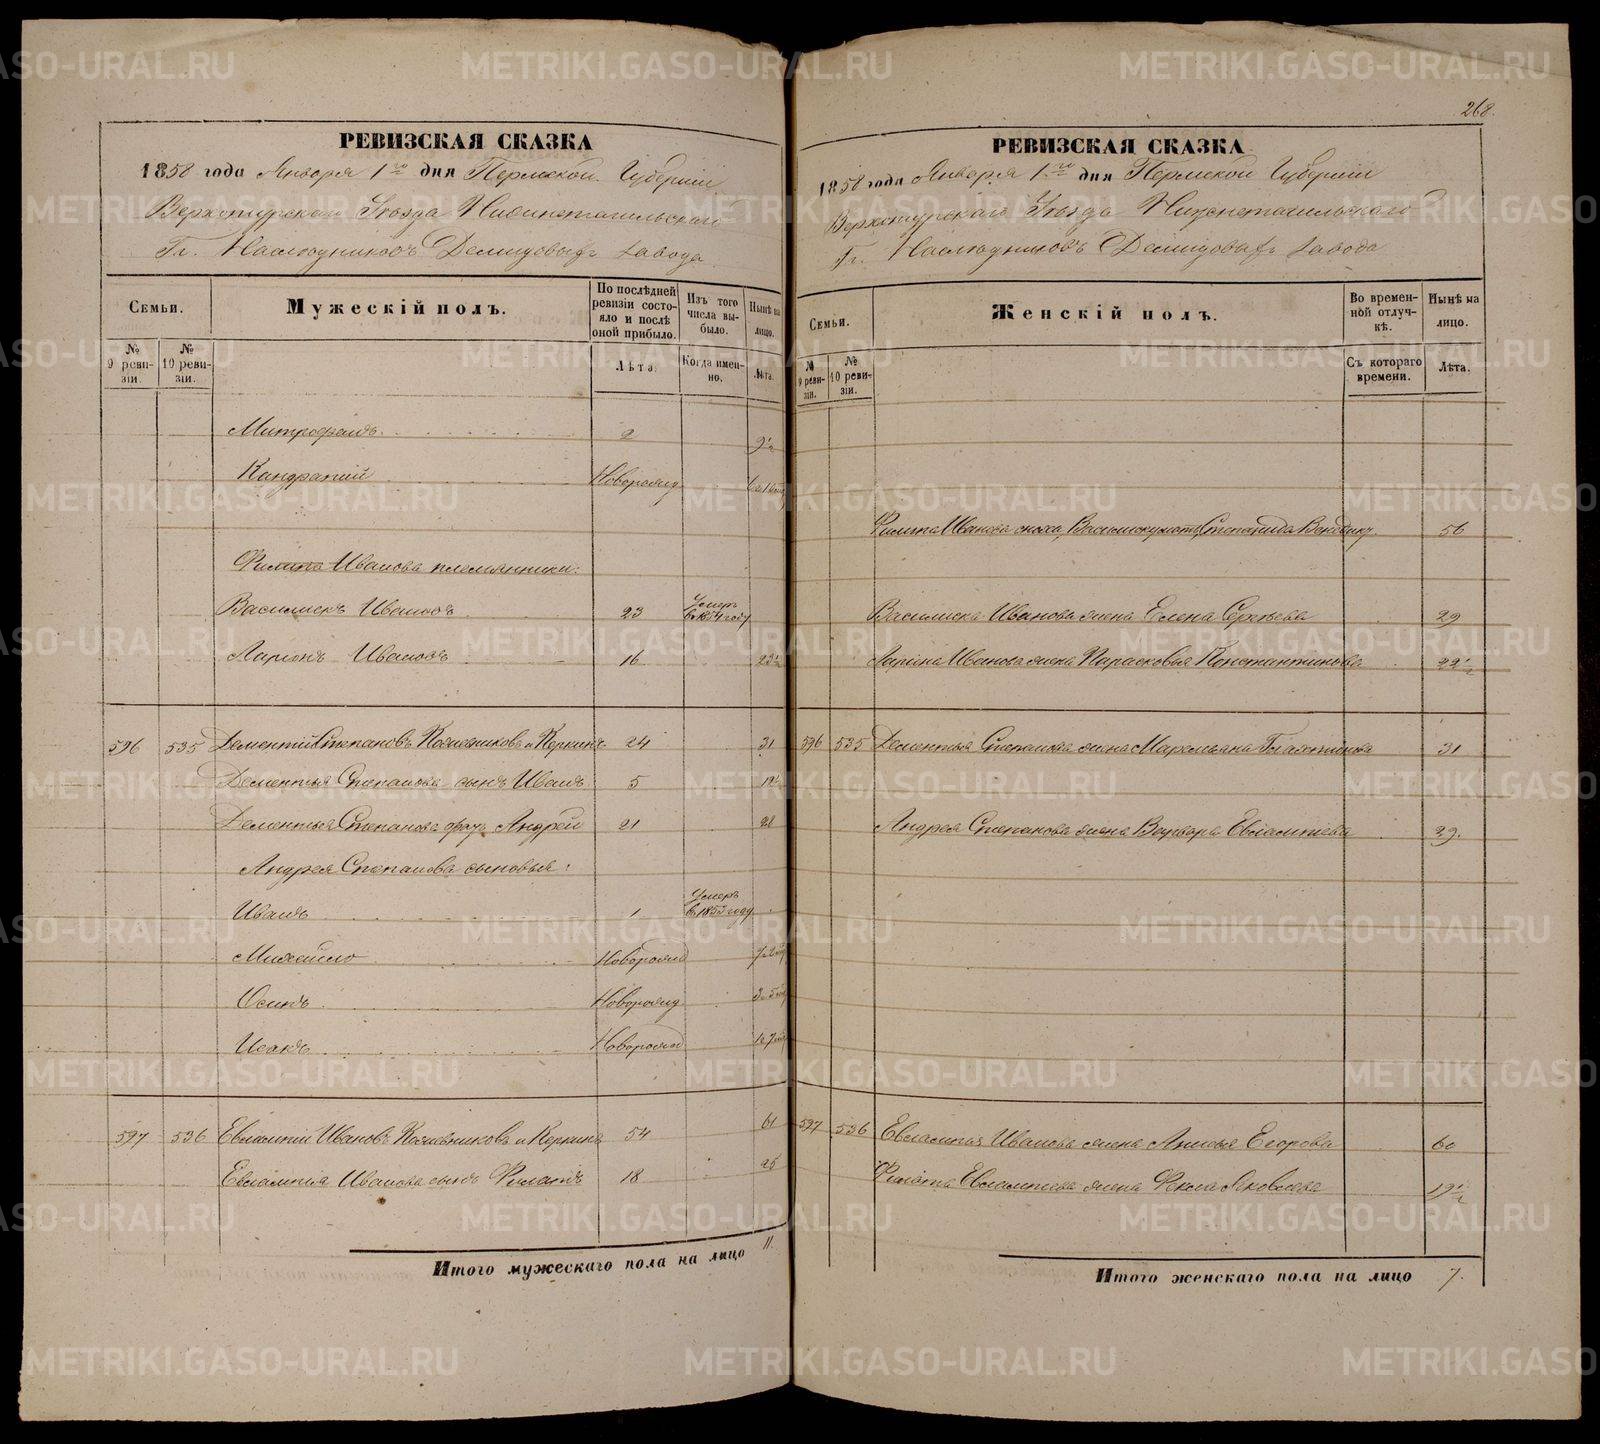 268.
РЕВИЗСКАЯ СКАЗКА
1858 года Января 1го дня Пермской Губернии
Верхотурскаго Уезда Нижнетагильскаго
Гг. Наследниковъ Демидовыхъ завода
Семьи.
№ 9 ревизіи.
№ 10 ревизіи.
Мужескій полъ.
По послѣдней ревизіи состояло и послѣ оной прибыло.
Лѣта.
Изъ того числа выбыло.
Когда именно.
Нынѣ на лицо.
Лѣта.
Митрофанъ 2 9½
Кандратий Новорожд
Филипа Иванова племянники:
Василискъ Ивановъ 23 Умеръ въ 1854 году
Ларионъ Ивановъ 16 23½
596 535 Дементий Степановъ Кожевниковъ и Керкинъ 24 31
Дементья Степанова сынъ Иванъ 5 12½
Дементья Степанова братъ Андрей 21 28
Андрея Степанова сыновья:
Иванъ 1 Умеръ въ 1853 году
Михейло Новорожд
Осипъ Новорожд
Исакъ Новорожд
597 536 Евлампий Ивановъ Кожевниковъ и Керкинъ 54 61
Евлампия Иванова сынъ Филатъ 18 25
Итого мужескаго пола на лицо 11.
РЕВИЗСКАЯ СКАЗКА
1858 года Января 1го дня Пермской Губернии
Верхотурскаго Уезда Нижнетагильскаго
Гг. Наследниковъ Демидовыхъ завода
Семьи.
№ 9 ревизіи.
№ 10 ревизіи.
Женскій полъ.
Во временной отлучкѣ.
Съ котораго времени.
Нынѣ на лицо.
Лѣта.
Филипа Иванова сноха, Василиску мать, Степанида 56
Василиска Иванова жена Елена Сергеева 29
Лариона Иванова жена Парасковья Константинова 22½
596 535 Дементья Степанова жена Маремьяна 31
Андрея Степанова жена Варвара Евлампиева 29.
597 536 Евлампия Иванова жена Анисья Егорова 60
Филата Евлампиева жена Фекла Яковлева 19½
Итого женскаго пола на лицо 7.
METRIKI.GASO-URAL.RU